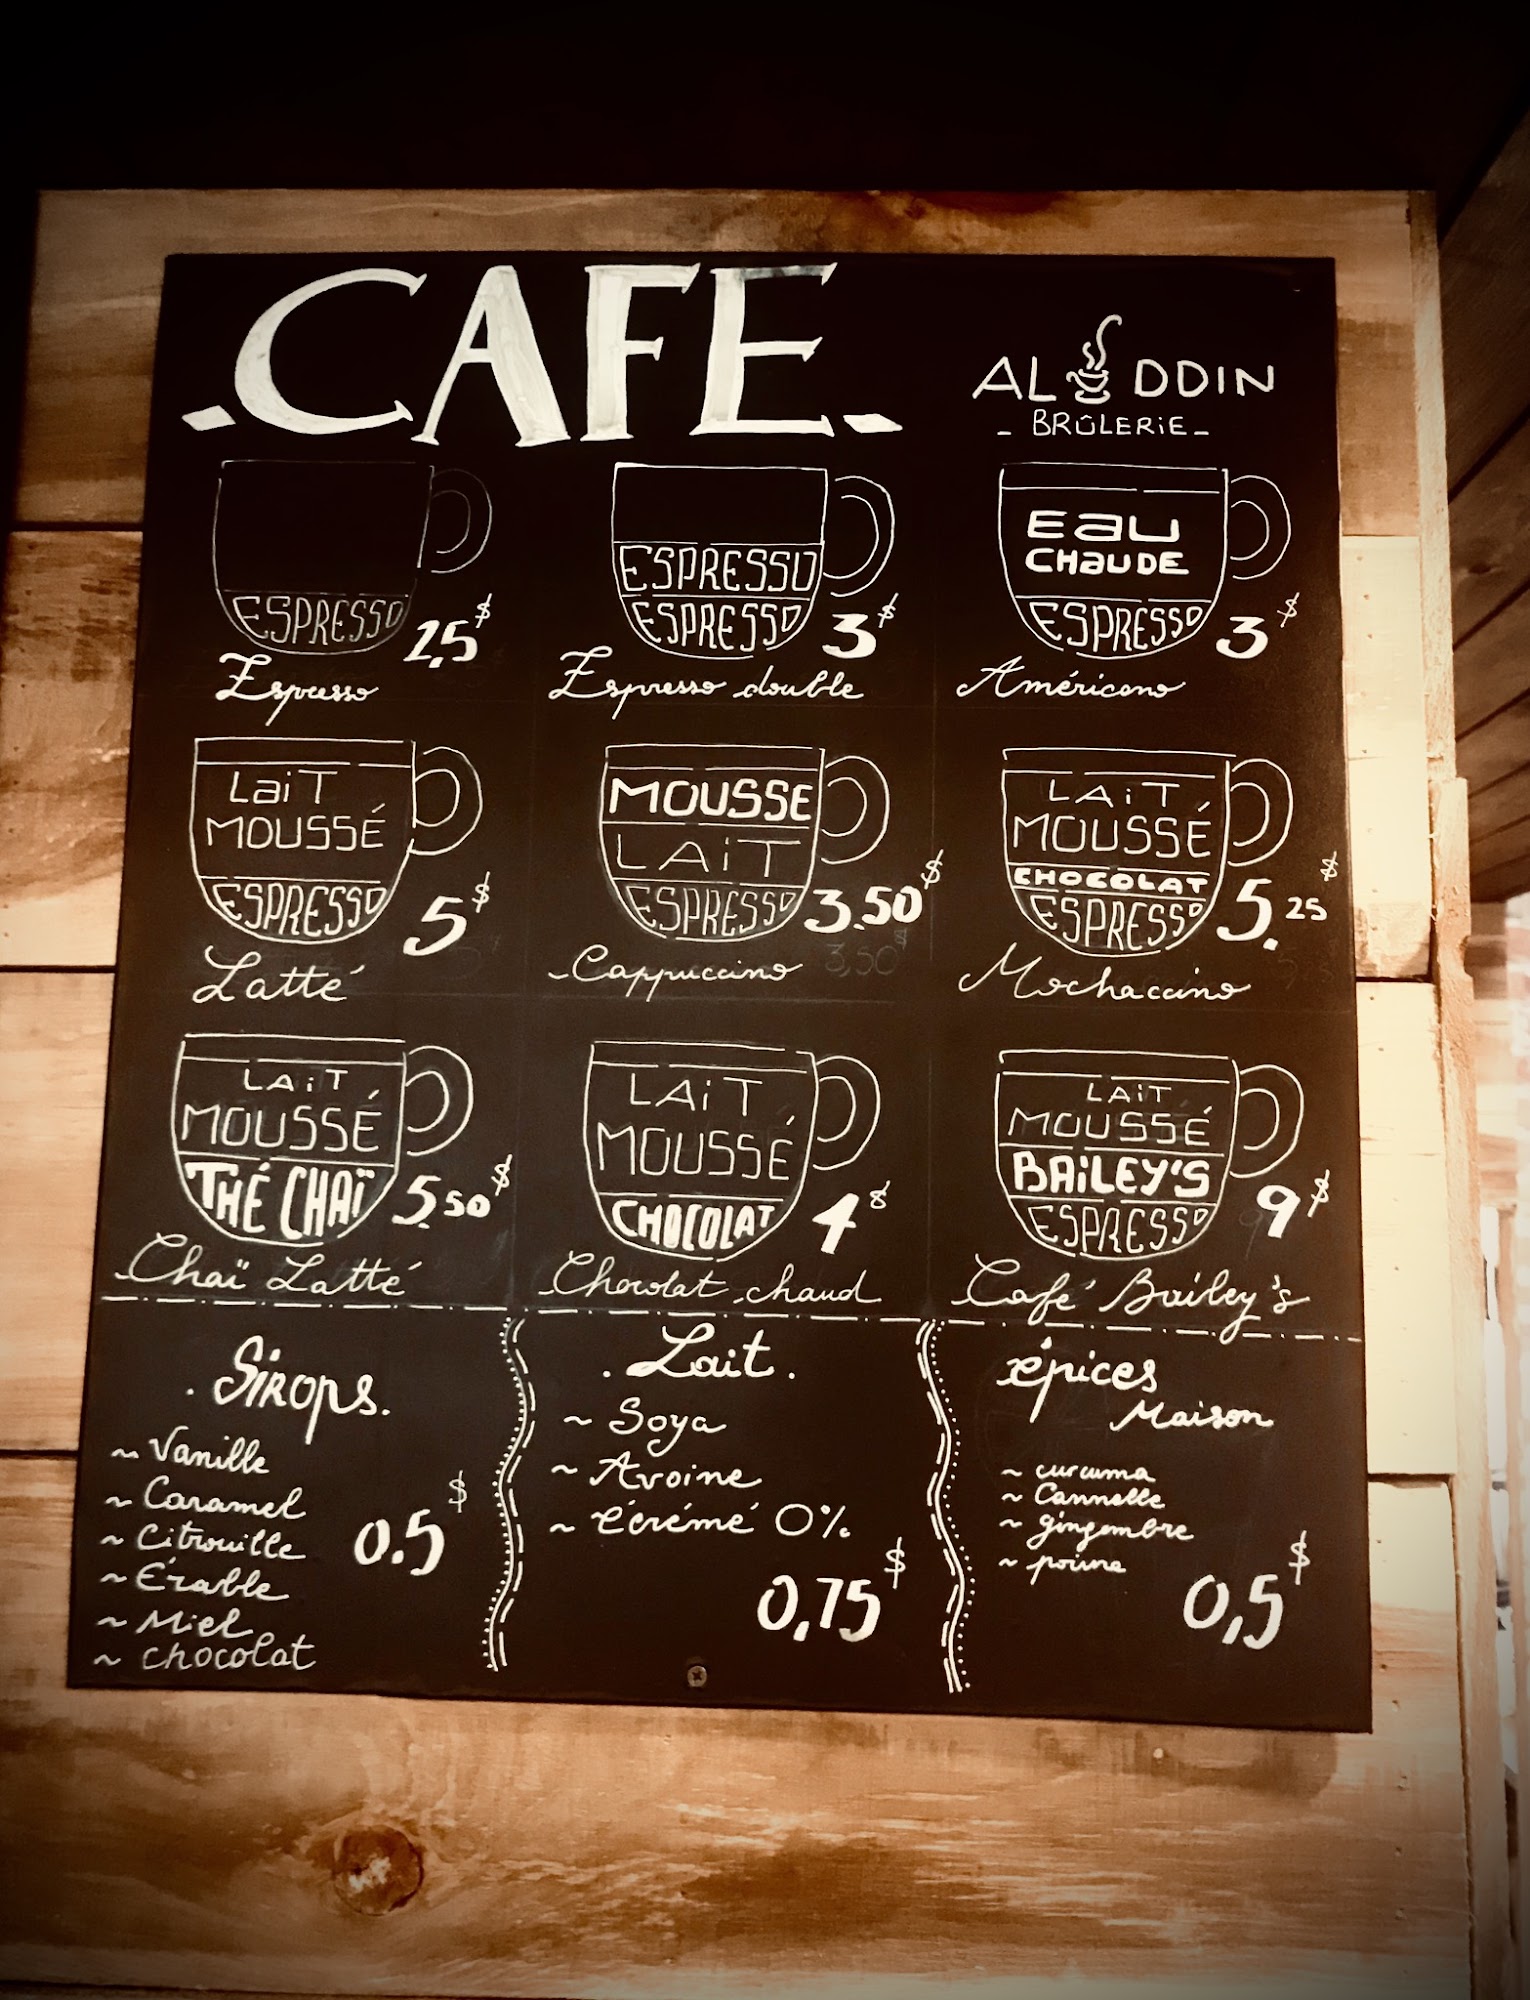 .CAFE.
ALADDIN
- BRÛLERIE -
ESPRESSO
2,5$
Espresso
ESPRESSO
ESPRESSO
3$
Espresso double
EAU
CHAUDE
ESPRESSO
3$
Américano
LAIT
MOUSSÉ
ESPRESSO
5$
Latté
MOUSSE
LAIT
ESPRESSO
3.50$
3,50$
Cappuccino
LAIT
MOUSSÉ
CHOCOLAT
ESPRESSO
5.25$
Mochaccino
LAIT
MOUSSÉ
THÉ CHAÏ
5.50$
Chaï Latté
LAIT
MOUSSÉ
CHOCOLAT
4$
Chocolat chaud
LAIT
MOUSSÉ
BAILEY'S
ESPRESSO
9$
Café Bailey's
. Sirops.
~ Vanille
~ Caramel
~ Citrouille
~ Érable
~ Miel
~ chocolat
0.5$
. Lait .
~ Soya
~ Avoine
~ écrémé 0%
0,75$
épices
Maison
~ curcuma
~ Cannelle
~ gingembre
~ poivre
0,5$